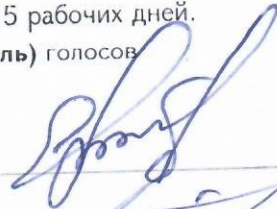 5 рабочих дней.
ль) голосов